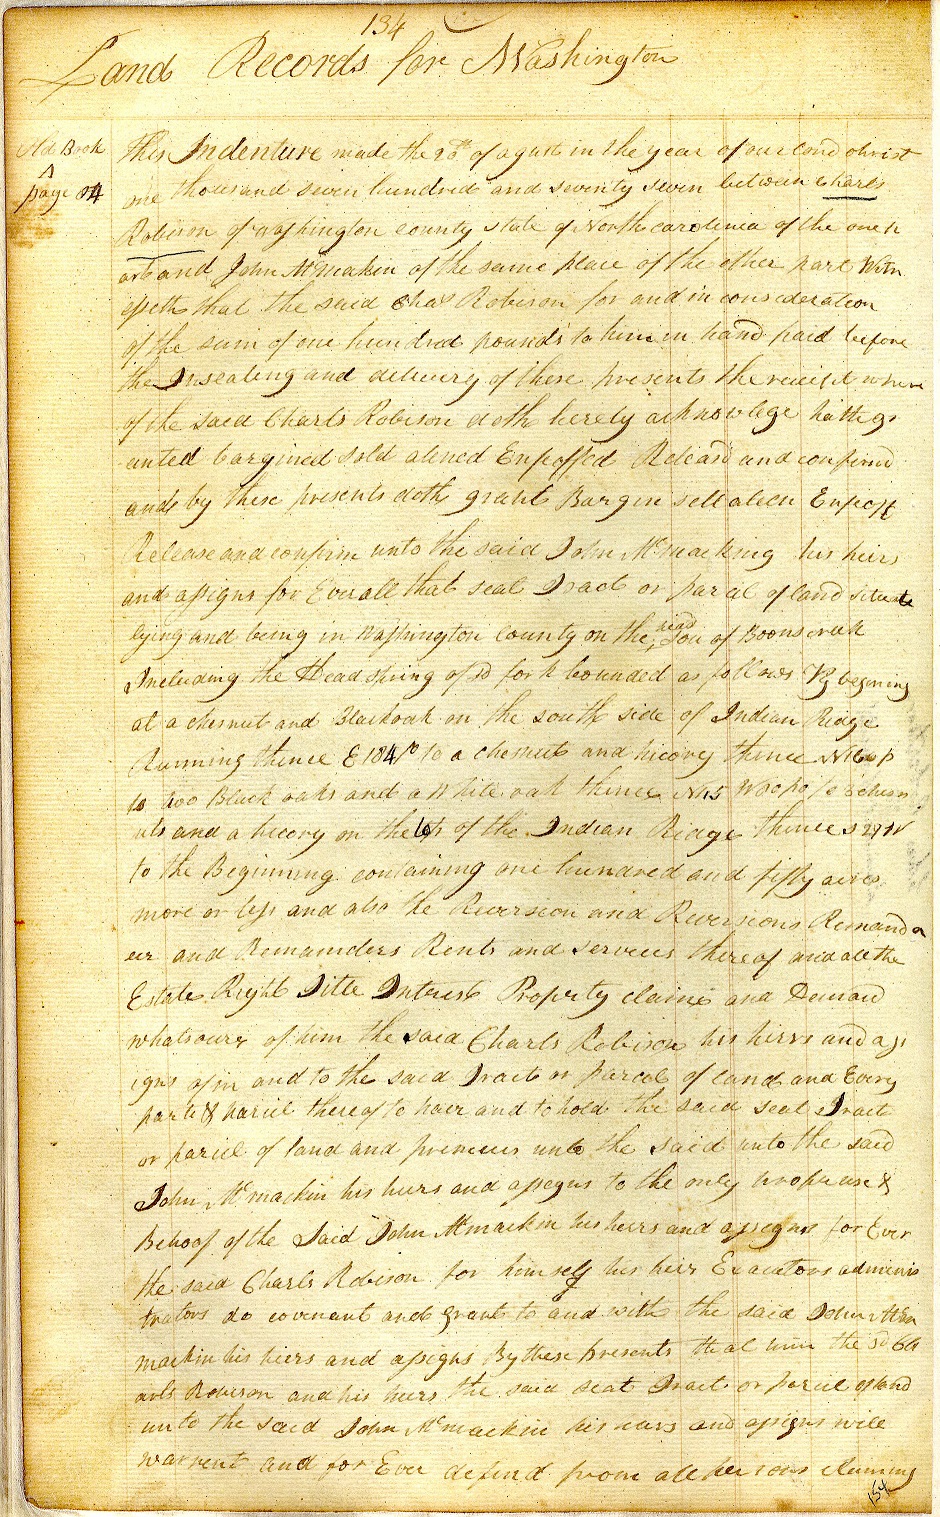 134
Land Records for Washington
Old Book
page 84
This Indenture made the 28th of agust in the year of our lord christ
one thousand seven hundred and seventy seven between Charls
Robison of Washington county state of North carolinea of the one p
art and John McMackin of the same place of the other part Witn
esseth that the said Chas Robison for and in consideration
of the sum of one hundred pounds to him in hand paid before
the Insealing and delivery of these presents the receipt where
of the said Charls Robison doth herely acknowlege hath gr
anted bargined sold aliened Enfoffed Releasd and confirmd
and by these presents doth grant Bargin sell alien Enfoff
Release and confirm unto the said John Mcmacking his heirs
and assigns for Ever all that seat Tract or parcel of land situate
lying and being in Washington county on the head of Boons creek
Including the Head spring of sd fork bounded as follows Vz begining
at a chesnut and Blackoak on the south side of Indian Ridge
Running thence E 184 po to a chesnut and hicory thence N 160 p
to two Black oaks and a White oak thence N45 W
uts and a hicory on the top of the Indian Ridge thence S
to the Beginning containing one hundred and fifty acres
more or less and also the Reversion and Reversions Remand
er and Remainders Rents and services thereof and all the
Estate Right Title Interest Property claime and Demand
whatsoever of him the said Charls Robison his hirrs and ass
igns of in and to the said Tract or parcel of land and Every
part & parcel thereof to have and to hold the said seat Tract
or parcel of land and premeces unto the said unto the said
John Mcmackin his heirs and assegns to the only use &
Behoof of the Said John Mcmackin his heirs and assegns for Ever
the said Charls Robison for himself his heir Executors adminis
trators do covenant and grant to and with the said John Mc
mackin his hiers and assigns By these Presents that him the sd Ch
arls Robison and his heirs the said seat Tract or parcel of land
unto the said John Mcmackin his heirs and assigns will
warrent and for Ever defend from all persons claiming
154